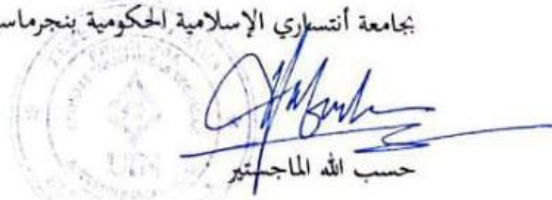 بجامعة أنتساري الإسلامية الحكومية بنجرماس
حسب الله الماجستير
UIN